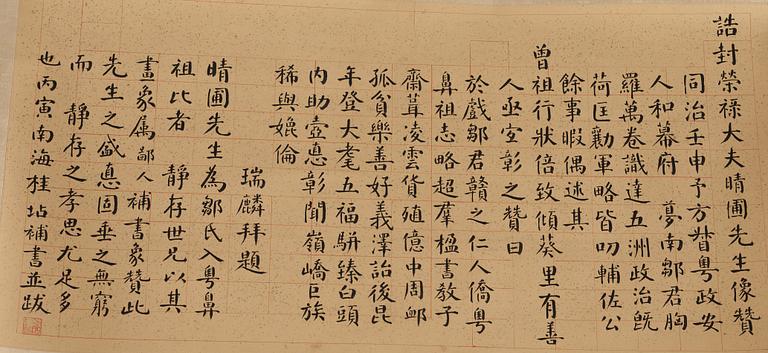 誥封榮祿大夫晴圃先生像贊
同治壬申予方督粵政安
人和幕府　夢南鄒君胸
羅萬卷識達五洲政治既
荷匡勷軍略皆叨輔佐公
餘事暇偶述其
曾祖行狀倍致傾葵里有善
人亟宜彰之贊曰
於戲鄒君贛之仁人僑粵
鼻祖志略超羣楹書教子
齋葺凌雲貨殖億中周卹
孤貧樂善好義澤詒後昆
年登大耄五福駢臻白頭
內助壼悳彰聞嶺嶠巨族
稀與媲倫
瑞麟拜題
晴圃先生為鄒氏入粵鼻
祖比者　靜存世兄以其
畫象属鄙人補書象贊此
先生之盛悳固垂之無窮
而　靜存之孝思尤足多
也丙寅南海桂坫補書並跋